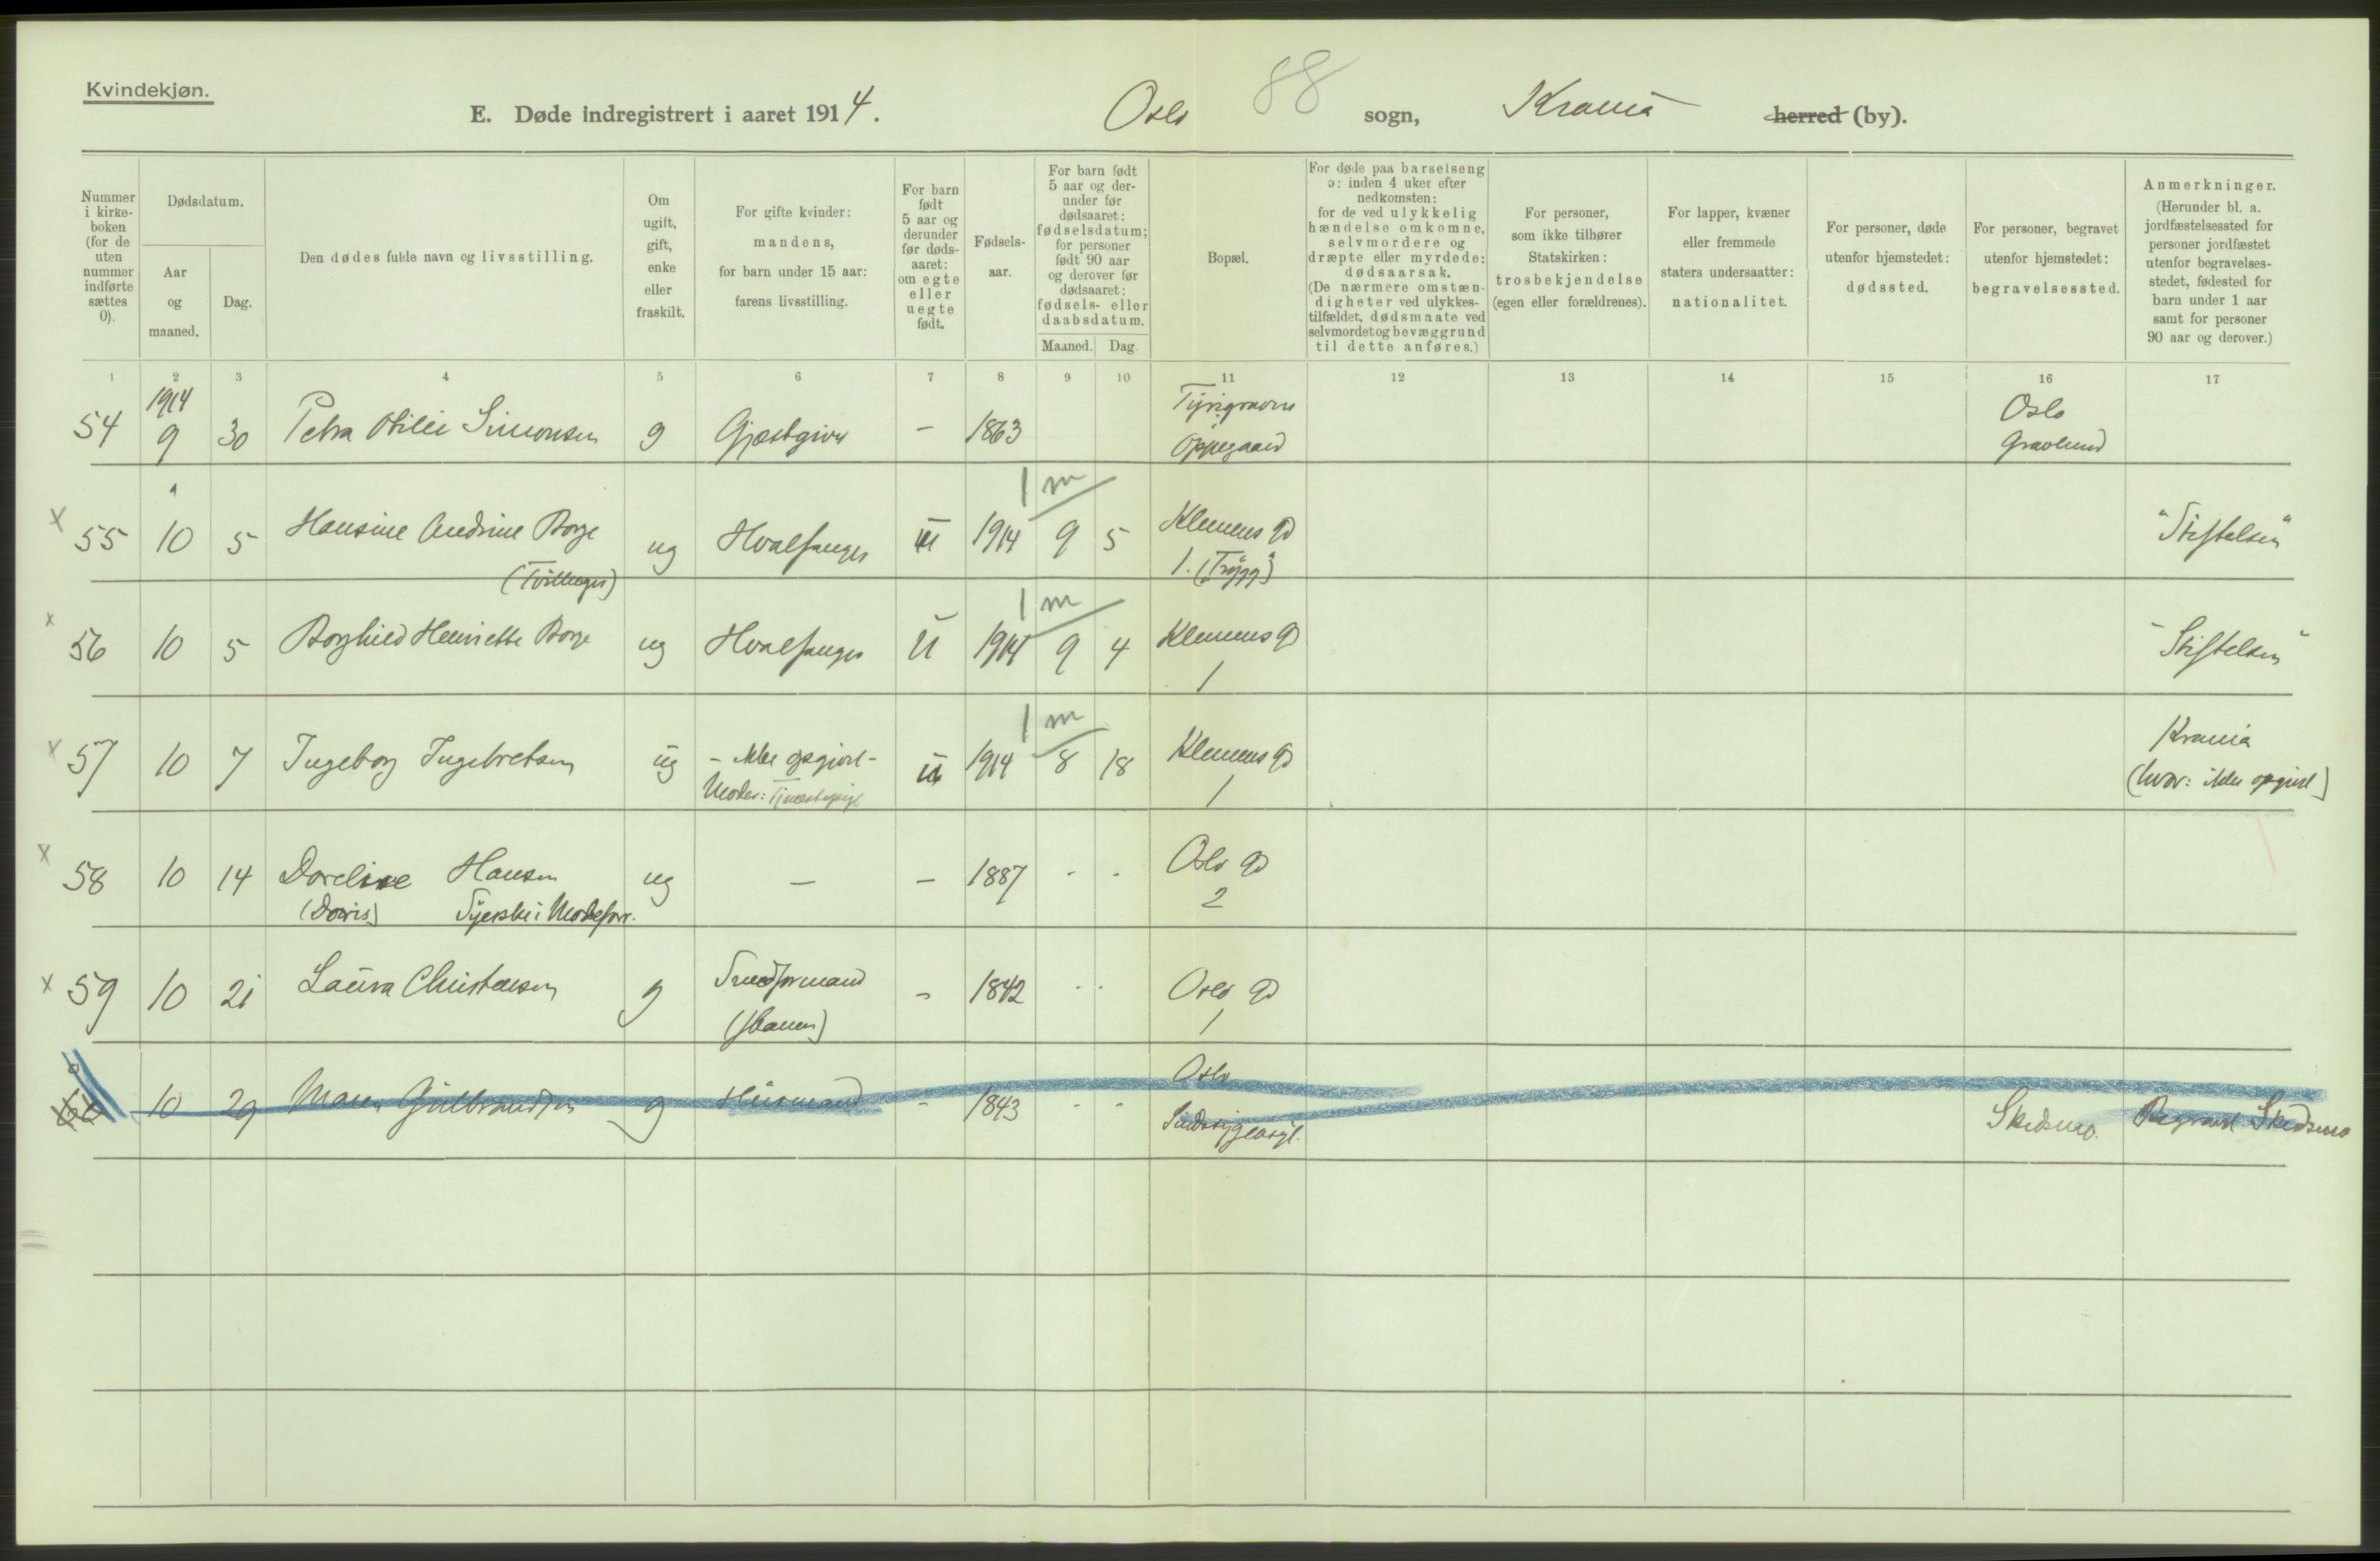 Kvindekjøn.
E. Døde indregistrert i aaret 1914. Oslo 88 sogn, Krania herred (by).
Nummer i kirke-boken (for de uten nummer indførte sættes 0).
Dødsdatum.
Aar og maaned.
Dag.
Den dødes fulde navn og livsstilling.
Om ugift, gift, enke eller fraskilt.
For gifte kvinder: mandens, for barn under 15 aar: farens livsstilling.
For barn født 5 aar og derunder før døds-aaret: om egte eller uegte født.
Fødsels-aar.
For barn født 5 aar og der-under før dødsaaret: fødselsdatum; for personer født 90 aar og derover før dødsaaret: fødsels- eller daabsdatum.
Maaned. Dag.
Bopæl.
For døde paa barselseng ɔ: inden 4 uker efter nedkomsten: for de ved ulykkelig hændelse omkomne, selvmordere og dræpte eller myrdede: dødsaarsak. (De nærmere omstæn-digheter ved ulykkes-tilfældet, dødsmaate ved selvmordet og bevæggrund til dette anføres.)
For personer, som ikke tilhører Statskirken: trosbekjendelse (egen eller forældrenes).
For lapper, kvæner eller fremmede staters undersaatter: nationalitet.
For personer, døde utenfor hjemstedet: dødssted.
For personer, begravet utenfor hjemstedet: begravelsessted.
Anmerkninger. (Herunder bl. a. jordfæstelsessted for personer jordfæstet utenfor begravelses-stedet, fødested for barn under 1 aar samt for personer 90 aar og derover.)
1 2 3 4 5 6 7 8 9 10 11 12 13 14 15 16 17
1914
54 9 30 Petra Otilie Simonsen g Gjæstgiver – 1863 Tyrigraven Oppegaard Oslo Gravlund
1 m
x 55 10 5 Hansine Andrine Borge ug Hvalfanger u 1914 9 5 Klemens gd "Stiftelsen"
(Tvillinger) 1. ("Trygg")
1 m
x 56 10 5 Borghild Henriette Borge ug Hvalfanger u 1914 9 4 Klemens gd "Stiftelsen"
1
1 m
x 57 10 7 Ingeborg Ingebretsen ug – ikke opgivet – u 1914 8 18 Klemens gd Krania
Moder: Tjenestepige 1 (hvor: ikke opgivet)
x 58 10 14 Doreline Hansen ug – – 1887 - - Oslo gd
(Dorris) Syerske i Modeforr. 2
x 59 10 21 Laura Christensen g – 1842 - - Oslo gd
1
60 10 29 Maren Gulbrandsen g Husmand - 1843 - - Oslo Sindssygeasyl. Skedsmo. Begravet Skedsmo